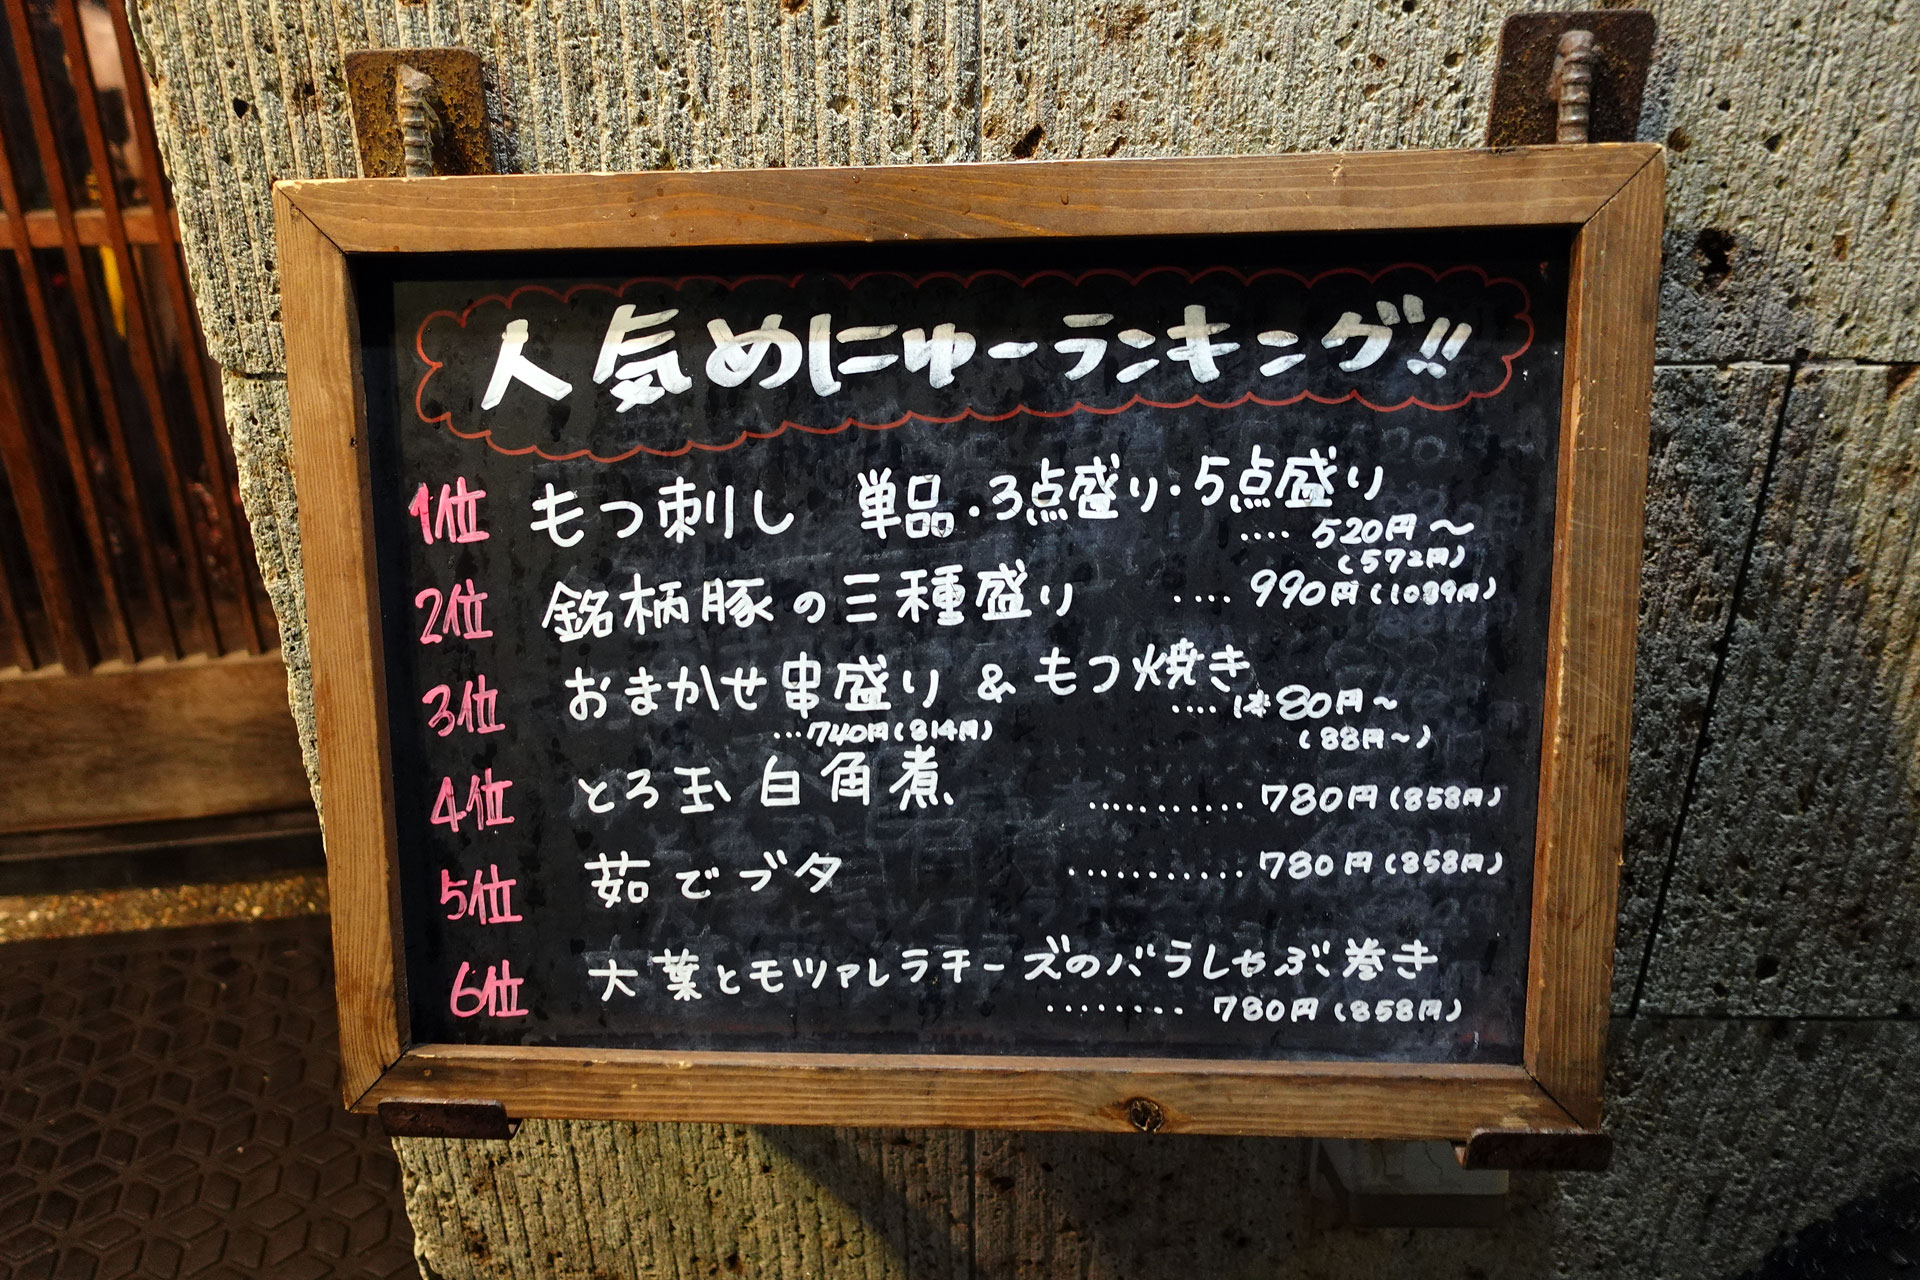 人気めにゅーランキング!!
1位 もつ刺し 単品・3点盛り・5点盛り
‥‥ 520円～
(572円)
2位 銘柄豚の三種盛り ‥‥ 990円(1089円)
3位 おまかせ串盛り & もつ焼き
‥‥ 1本80円～
…740円(814円) (88円～)
4位 とろ玉白角煮 ………… 780円(858円)
5位 茹でブタ ………… 780円(858円)
6位 大葉とモツァレラチーズのバラしゃぶ巻き
‥‥‥‥ 780円(858円)